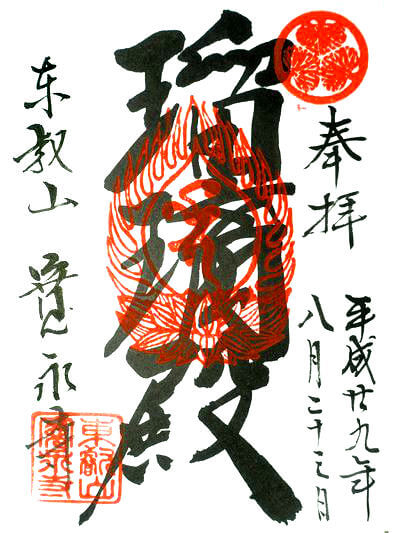 奉拝
平成廿九年
八月二十三日
瑠璃殿
東叡山 寛永寺
東叡山
寛永寺